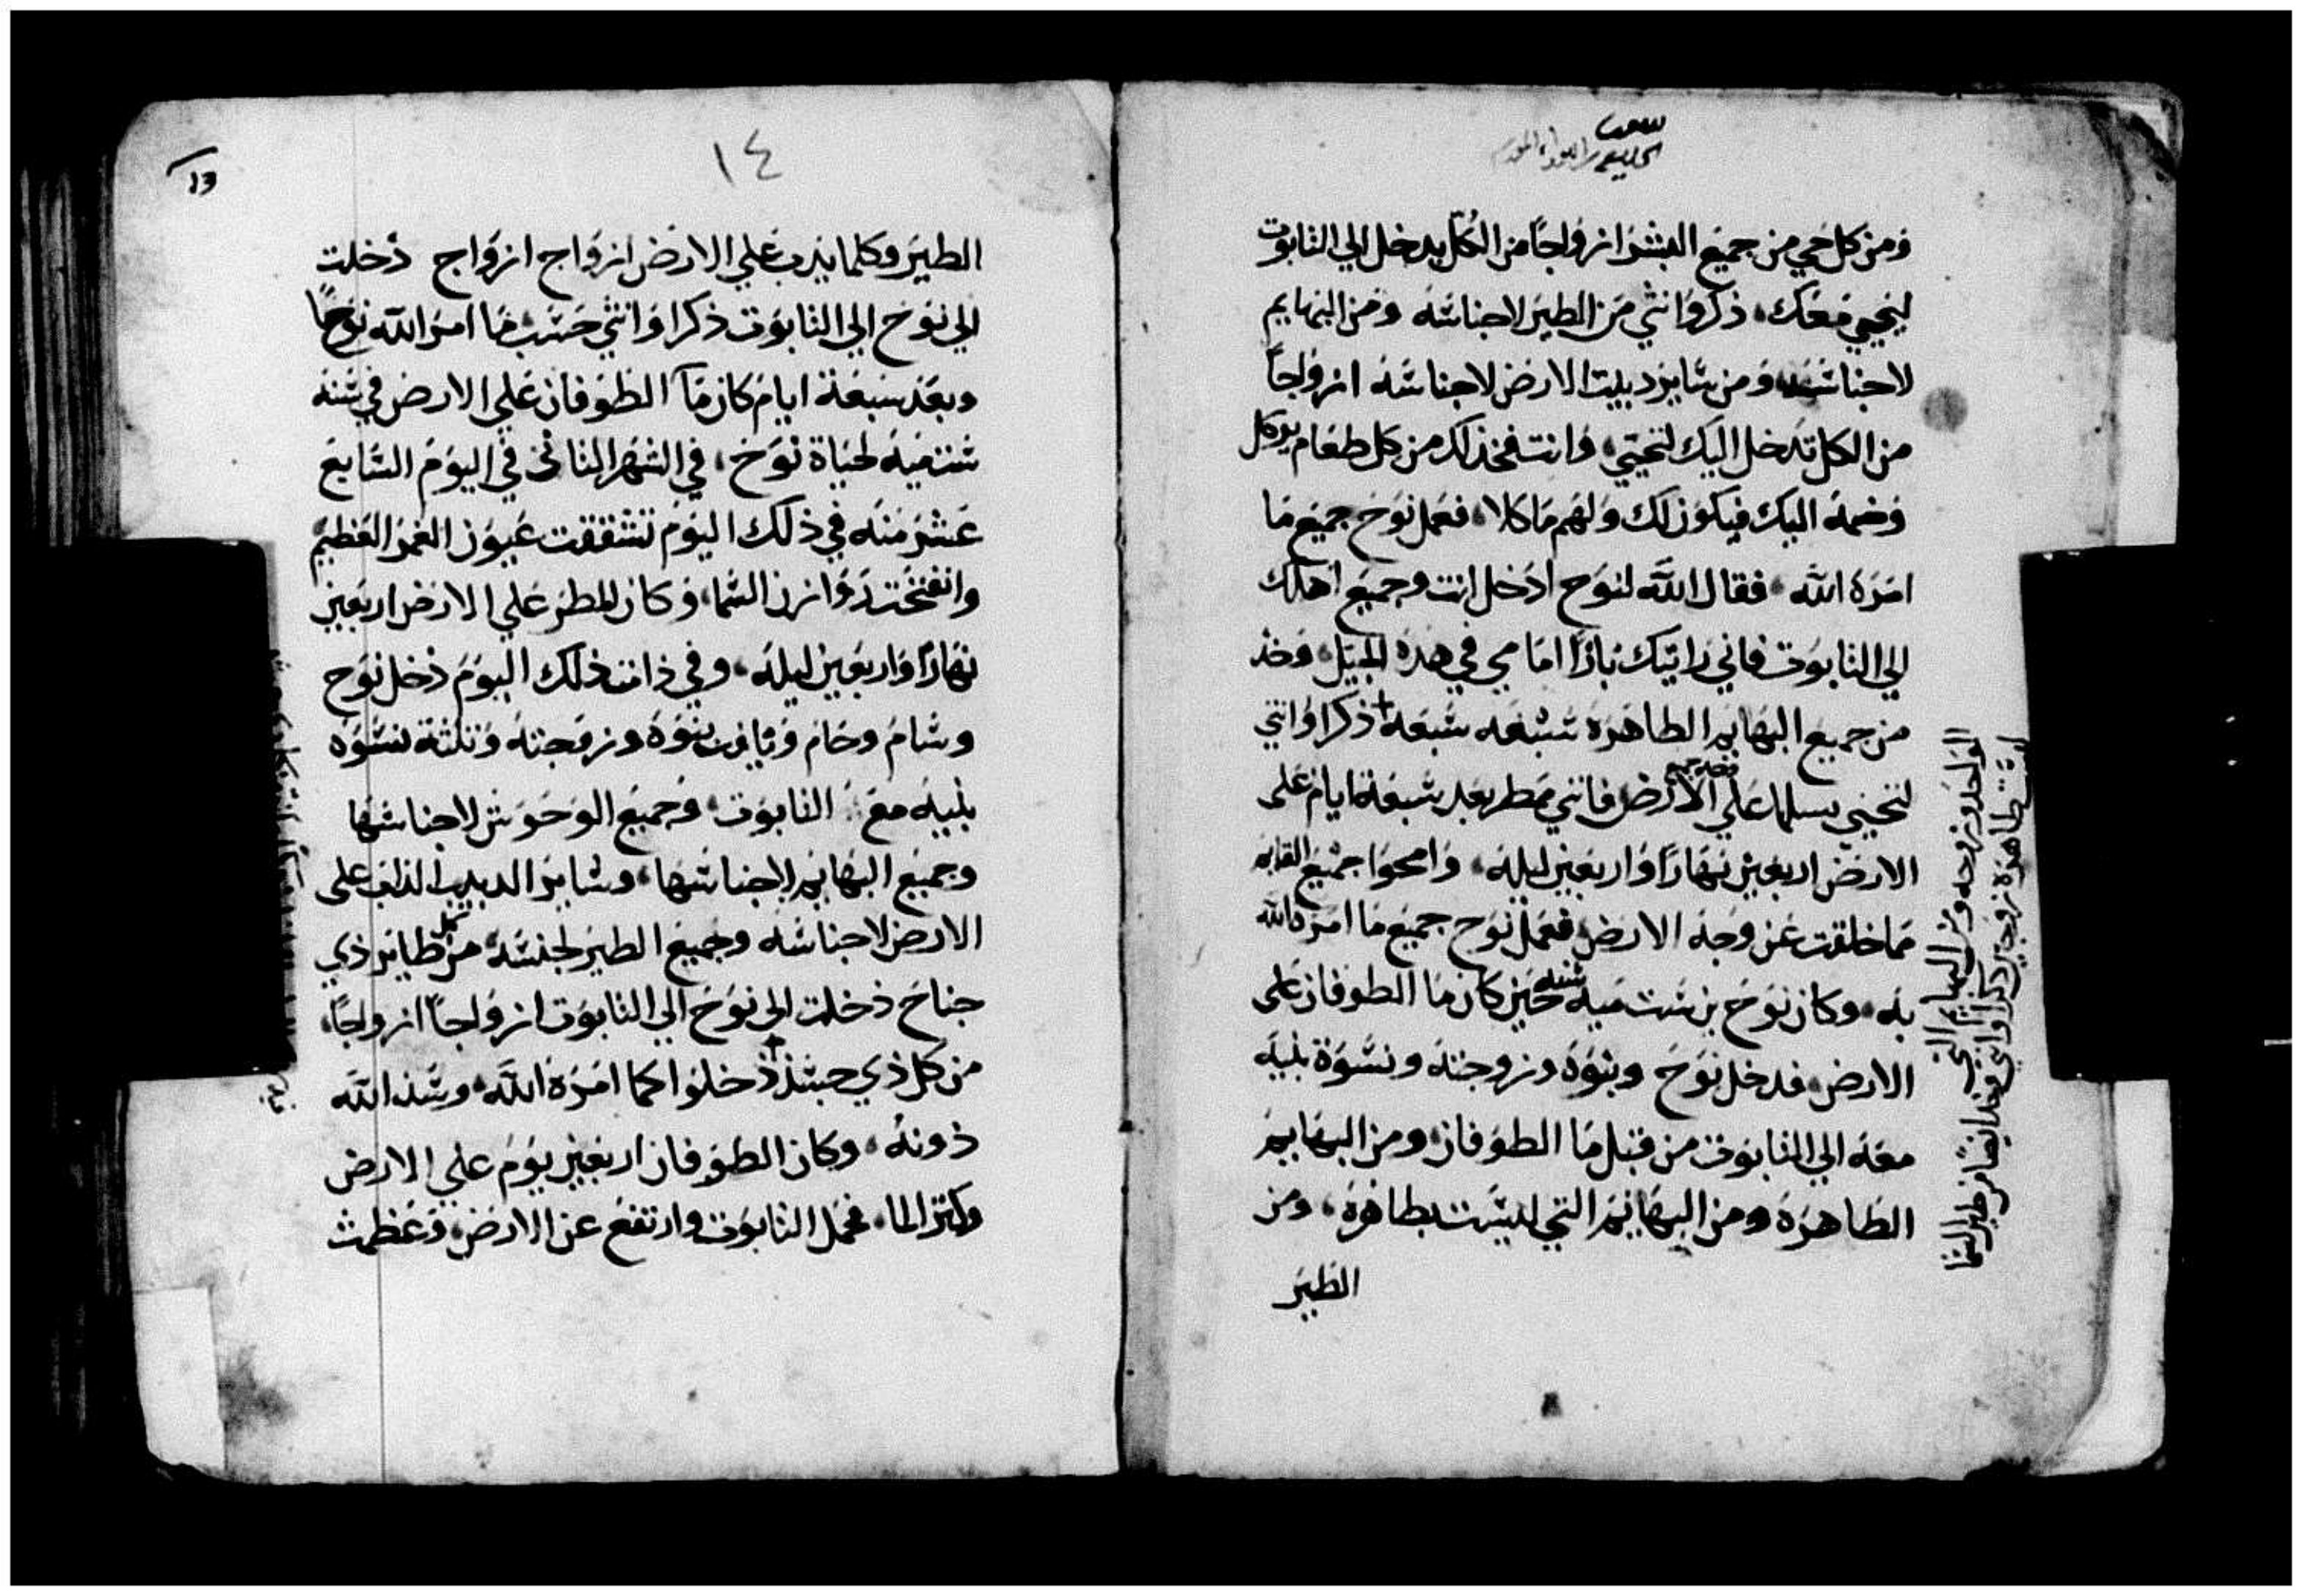 ومن كل حي من جميع البشر ازواجاً من الكل يدخل الي التابوت
ليحيي معك، ذكر وانثي من الطير لاجناسه ومن البهايم
لاجناسه ومن ساير دبيب الارض لاجناسه ازواجاً
من الكل تدخل اليك لتحيي، وانت فخذ لك من كل طعام يوكل
وضمه اليك فيكون لك ولهم ماكلا، فعمل نوح جميع ما
امره الله، فقال الله لنوح ادخل انت وجميع اهلك
الي التابوت فاني رايتك باراً امامي في هذه الجيل، وخذ
من جميع البهايم الطاهره سبعه سبعه + ذكرا وانثي
لتحيي نسلها علي الارض فانني ممطر بعد سبعة ايام علي
الارض اربعين نهاراً واربعين ليله، وامحوا جميع القايم
مما خلقت عن وجه الارض فعمل نوح جميع ما امره الله
به، وكان نوح بن ست ميه سنه حين كان ما الطوفان علي
الارض فدخل نوح وبنوه وزوجته ونسوة بنيه
معه الي التابوت من قبل ما الطوفان، ومن البهايم
الطاهره ومن البهايم التي ليست بطاهره، ومن
الطير
الواحد وزوجه ومن البهايم التي
ليست طاهره زوجين ذكرا وانثي وخذ ايضاً من طير السما
١٤
13
الطير وكلما يدب علي الارض ازواج ازواج دخلت
الي نوح الي التابوت ذكرا وانثي حسب ما امر الله نوحاً
وبعد سبعة ايام كان ما الطوفان علي الارض في سنه
ستميه لحياة نوح، في الشهر الثاني في اليوم السابع
عشر منه في ذلك اليوم تشققت عيون الغمر العظيم
وانفتحت روازن السما، وكان المطر علي الارض اربعين
نهاراً واربعين ليله، وفي ذات ذلك اليوم دخل نوح
وسام وحام ويافت بنوه وزوجته وتلتة نسوه
بنيه مع التابوت، وجميع الوحوش لاجناسها
وجميع البهايم لاجناسها، وساير الدبيب الذي علي
الارض لاجناسه وجميع الطير لجنسه من كل طاير ذي
جناح دخلت الي نوح الي التابوت ازواجاً ازواجاً،
من كل ذي جسد + دخلوا كما امره الله، وسد الله
دونه، وكان الطوفان اربعين يوم علي الارض
وكتر الما، فحمل التابوت وارتفع عن الارض، وعظمت